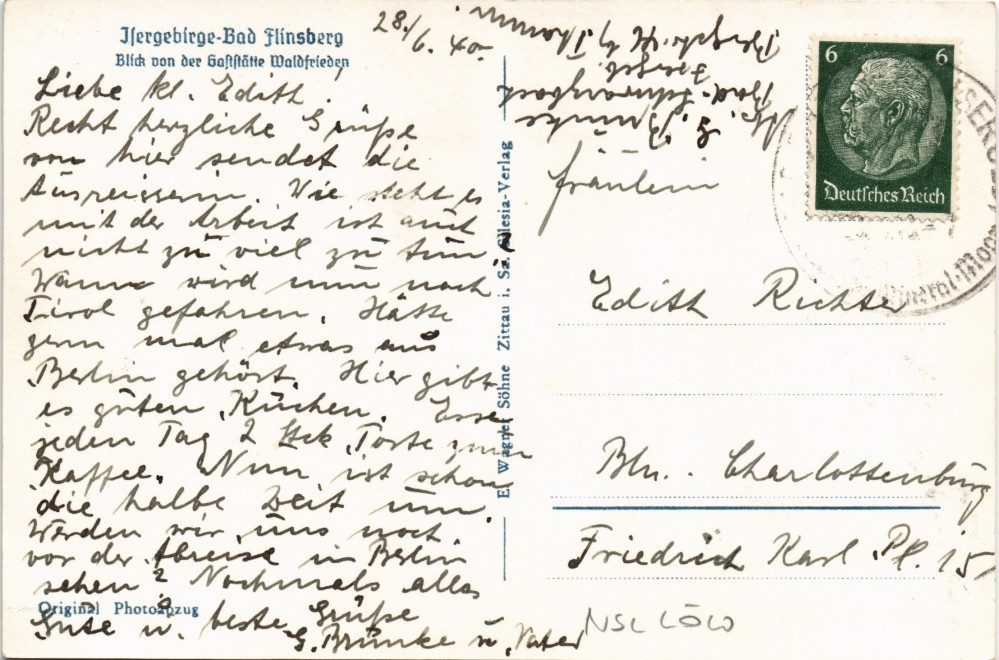 Isergebirge-Bad Flinsberg
Blick von der Gaststätte Waldfrieden
28./6. 40.
Liebe kl. Edith!
Recht herzliche Grüße
von hier sendet die
Ausreisserin. Wie steht es
mit der Arbeit ist auch
nicht zu viel zu tun?
Wann wird nun nach
Tirol gefahren. Hätte
gern mal etwas aus
Berlin gehört. Hier gibt
es guten Kuchen. Esse
jeden Tag 2 Stck Torte zum
Kaffee. Nun ist schon
die halbe Zeit um.
Werden wir uns noch
vor der Abreise in Berlin
sehen? Nochmals alles
Gute u. beste Grüße
G. Brünke u. Vater
Original Photoabzug
E. Wagner Söhne Zittau i. Sa. Silesia-Verlag
G. Brünke
Bad-Schwarzbach
6 6
Deutsches Reich
Fräulein
Edith Richter
Bln. Charlottenburg
Friedrich Karl Pl. 15
NSL LÖW